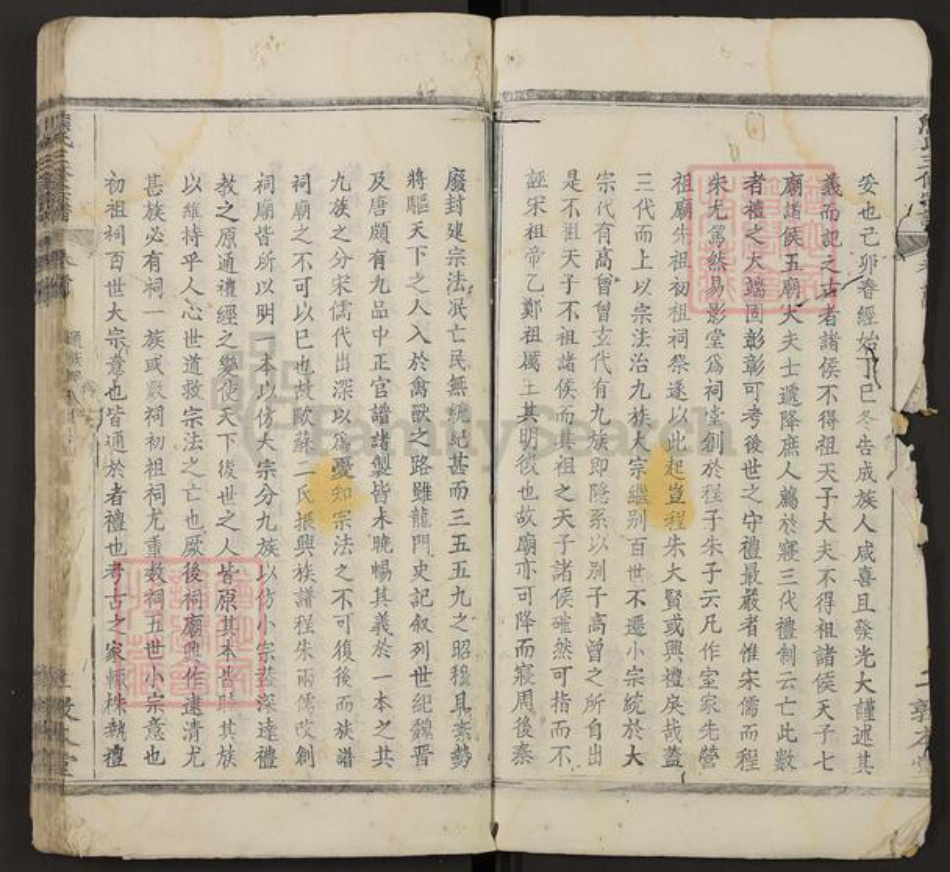 妥也己卯春經始丁巳冬告成族人咸喜且發光大謹述其
義而記之古者諸侯不得祖天子大夫不得祖諸侯天子七
廟諸侯五廟大夫士遞降庶人薦於寢三代禮制云亡此數
者禮之大端固彰彰可考後世之守禮最嚴者惟宋儒而程
朱尤篤然易影堂為祠堂創於程子朱子云凡作室家先營
祖廟先祖初祖祠祭遂以此起豈程朱大賢或興禮戾哉蓋
三代而上以宗法治九族大宗繼別百世不遷小宗統於大
宗代有高曾曾玄代有九族即隱系以別子高曾之所自出
是不祖天子不祖諸侯而其祖之天子諸侯確然可指而不
誣宋祖帝乙鄭祖厲王其明徵也故廟亦可降而寢周後秦
廢封建宗法泯亡民無統紀甚而三五五九之昭穆具紊勢
將驅天下之人入於禽獸之路雖龍門史記叙列世紀魏晋
及唐頗有九品中正官譜諸製皆未曉暢其義於一本之共
九族之分宋儒代出深以為憂知宗法之不可復後而族譜
祠廟之不可以已也故歐蘇二氏振興族譜程朱兩儒改創
祠廟皆所以明一本以仿大宗分九族以仿小宗葢深達禮
教之原通禮經之變使天下後世之人皆原其本皆睦其族
以維持乎人心世道救宗法之亡也厥後祠廟興作逮清尤
甚族必有祠一族或數祠初祖祠尤重数祠五世小宗意也
初祖祠百世大宗意也皆通於者禮也考古之家輒株執禮